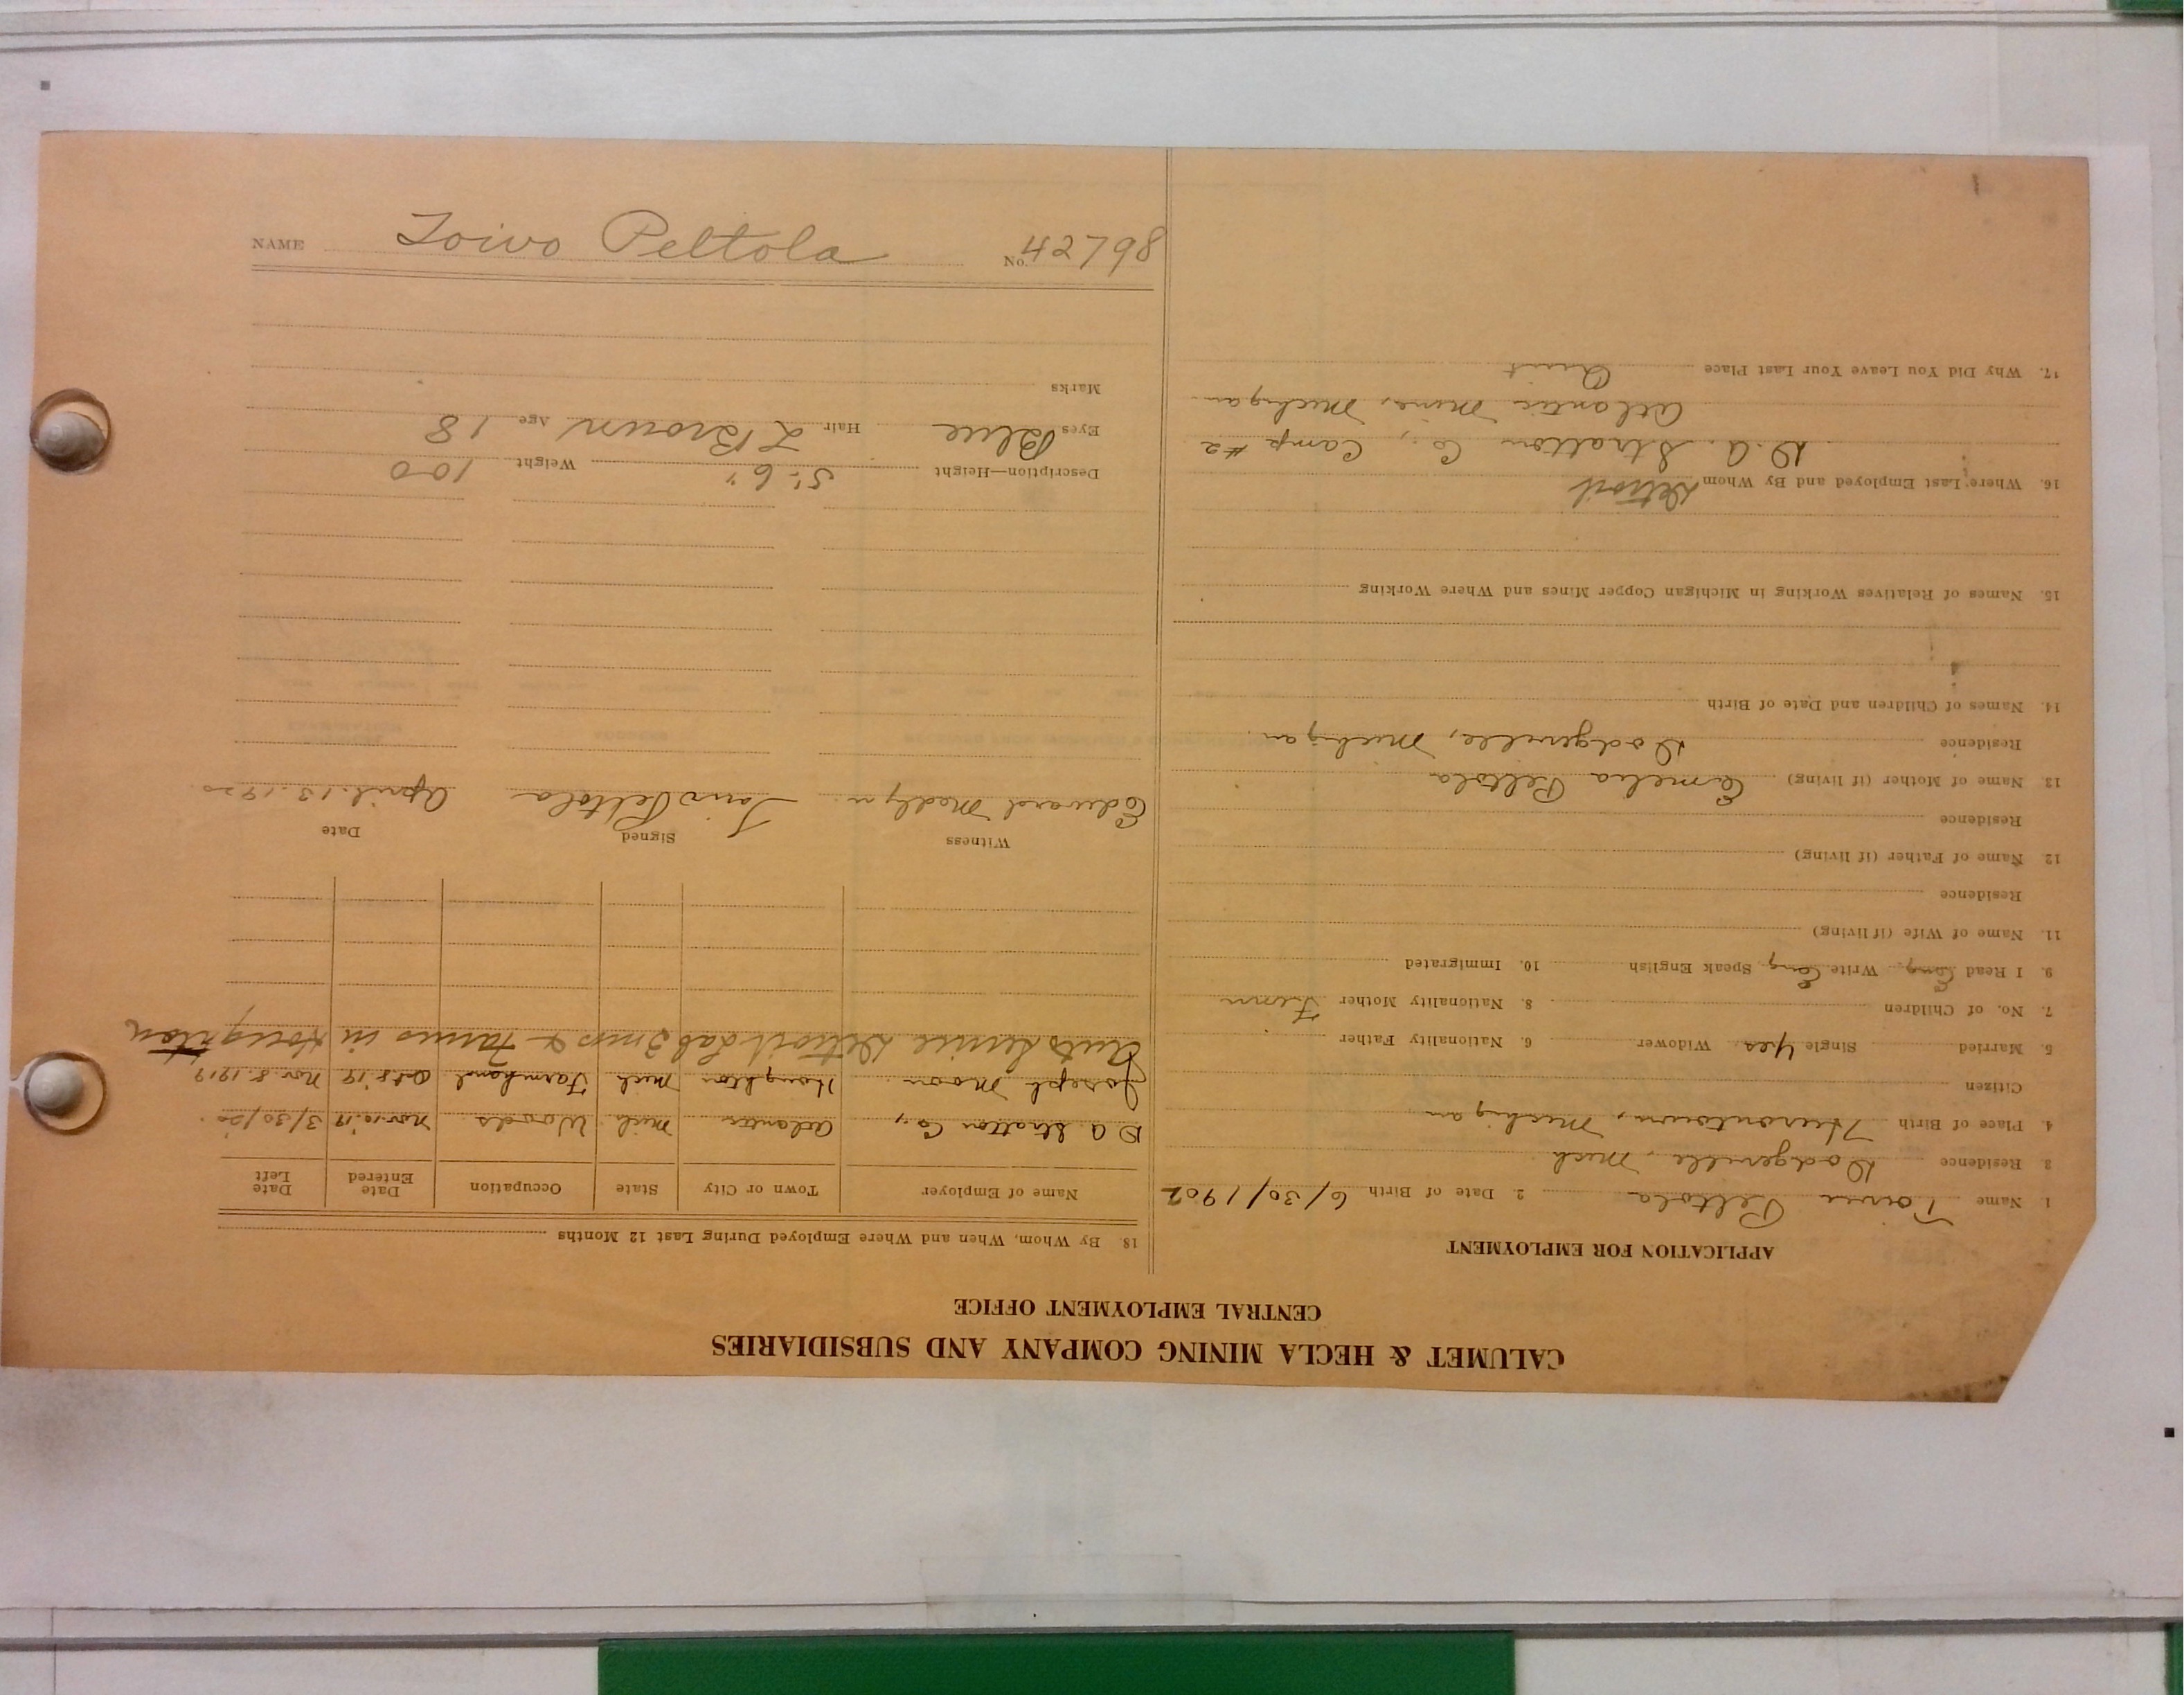 NAME Toivo Peltola No. 42798
CALUMET & HECLA MINING COMPANY AND SUBSIDIARIES
CENTRAL EMPLOYMENT OFFICE
APPLICATION FOR EMPLOYMENT
1. Name Peltola 2. Date of Birth 6/30/1902
3. Residence Dodgeville, Mich.
4. Place of Birth Hurontown, Michigan
Citizen
5. Married Single Yes Widower 6. Nationality Father
7. No. of Children 8. Nationality Mother Finn
9. I Read Eng. Write Eng Speak English 10. Immigrated
11. Name of Wife (if living)
Residence
12. Name of Father (if living)
Residence
13. Name of Mother (if living) Emelia Peltola
Residence Dodgeville, Michigan.
14. Names of Children and Date of Birth
15. Names of Relatives Working in Michigan Copper Mines and Where Working
16. Where Last Employed and By Whom Detroit
D. A. Stratton Co., Camp #2
Atlantic Mine, Michigan
17. Why Did You Leave Your Last Place Quit
18. By Whom, When and Where Employed During Last 12 Months
Name of Employer Town or City State Occupation Date Entered Date Left
D A Stratton Co., Atlantic Mich Woods Nov. 10, '19 3/30/20
Joseph Moon Houghton Mich Farmhand Oct 8 '19 Nov. 8. 1919
Detroit Lab 3 mos & Farms in Houghton
Witness Signed Date
Edward Medlyn Peltola April. 13. 1920.
Description—Height 5' 6" Weight 100
Eyes Blue Hair L Brown Age 18
Marks